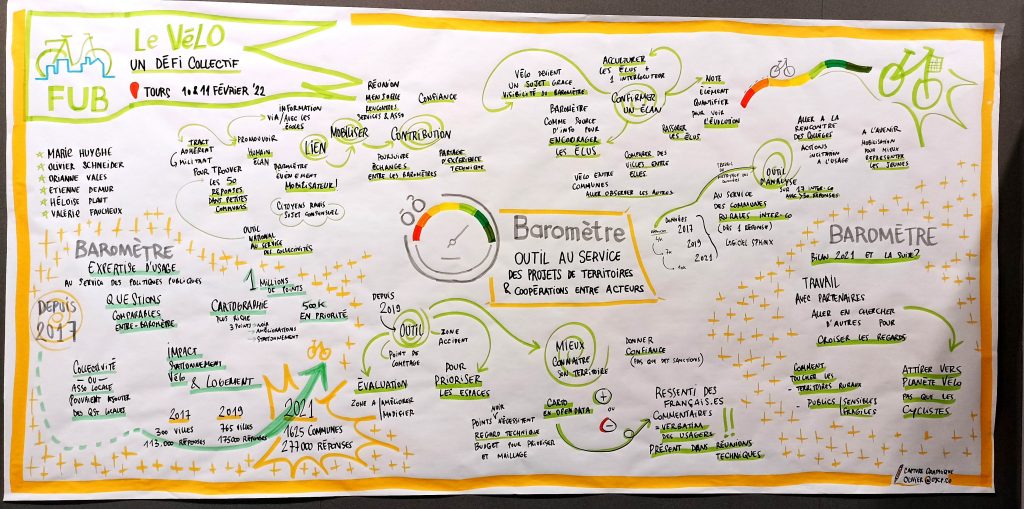 Le Vélo
un défi collectif
FUB
Tours 10 & 11 février '22
Marie Huyghe
Olivier Schneider
Orianne Vales
Etienne Demur
Héloïse Plaut
Valérie Faucheux
Tract
adhérent
militant
pour trouver
les 50
réponses
dans petites
communes
Promouvoir
via
Information
avec les
humain
élan
Lien
Baromètre
évènement
mobilisateur!
Citoyens ravis
sujet consensuel
Outil
national
au service
des collectivités
Mobiliser
Réunion
mensuelle
rencontres
services & asso
Confiance
Contribution
Poursuivre
échanges
entre les baromètres
Partage
d'expérience
technique
Vélo devient
un sujet grâce
visibilité du baromètre
Acculturer
les élus +
1 interlocuteur
Confirmer
un élan
Baromètre
comme source
d'info pour
encourager
les élus
Rassurer
les élus
Note
élément
quantifier
pour voir
l'évolution
Comparer des
villes entre
elles
Vélo entre
communes
aller observer les autres
Outil
d'analyse
sur 17 inter-co
avec >50 réponses
au service
des communes
rurales inter-co
(dès 1 réponse)
Logiciel Sphinx
Données
2017
2019
2021
Aller à la
rencontre
des collèges
Actions
incitation
à l'usage
À l'avenir
mobilisation
pour mieux
représenter
les jeunes
Baromètre
outil au service
des projets de territoires
& coopérations entre acteurs
Baromètre
Expertise d'usage
au service des politiques publiques
Depuis
2017
Questions
comparables
entre-baromètre
1 millions
de points
Cartographie
plus riche
3 points
noir
améliorations
stationnement
500k
en priorité
Collectivité
ou
asso locale
pouvaient ajouter
des qst locales
Impact
stationnement
vélo
& logement
2017
300 villes
113.000 réponses
2019
765 villes
175000 réponses
2021
1625 communes
277000 réponses
Depuis
2019
Outil
Point de
comptage
Zone
accident
Évaluation
Zone à améliorer
modifier
Pour
prioriser
les espaces
Mieux
connaître
son territoire
Donner
confiance
(pas que des sanctions)
Points noir nécessitent
regard technique
budget pour prioriser
et maillage
Carto
en open data
+
ou
-
Ressenti des
français.es
commentaires
= verbatim
des usagers
présent dans réunions
techniques
!!
Baromètre
Bilan 2021 et la suite?
Travail
avec partenaires
Aller en chercher
d'autres pour
croiser les regards
Comment
toucher les
territoires ruraux
- publics sensibles
fragiles
Attirer vers
planète vélo
pas que les
cyclistes
Capture graphique